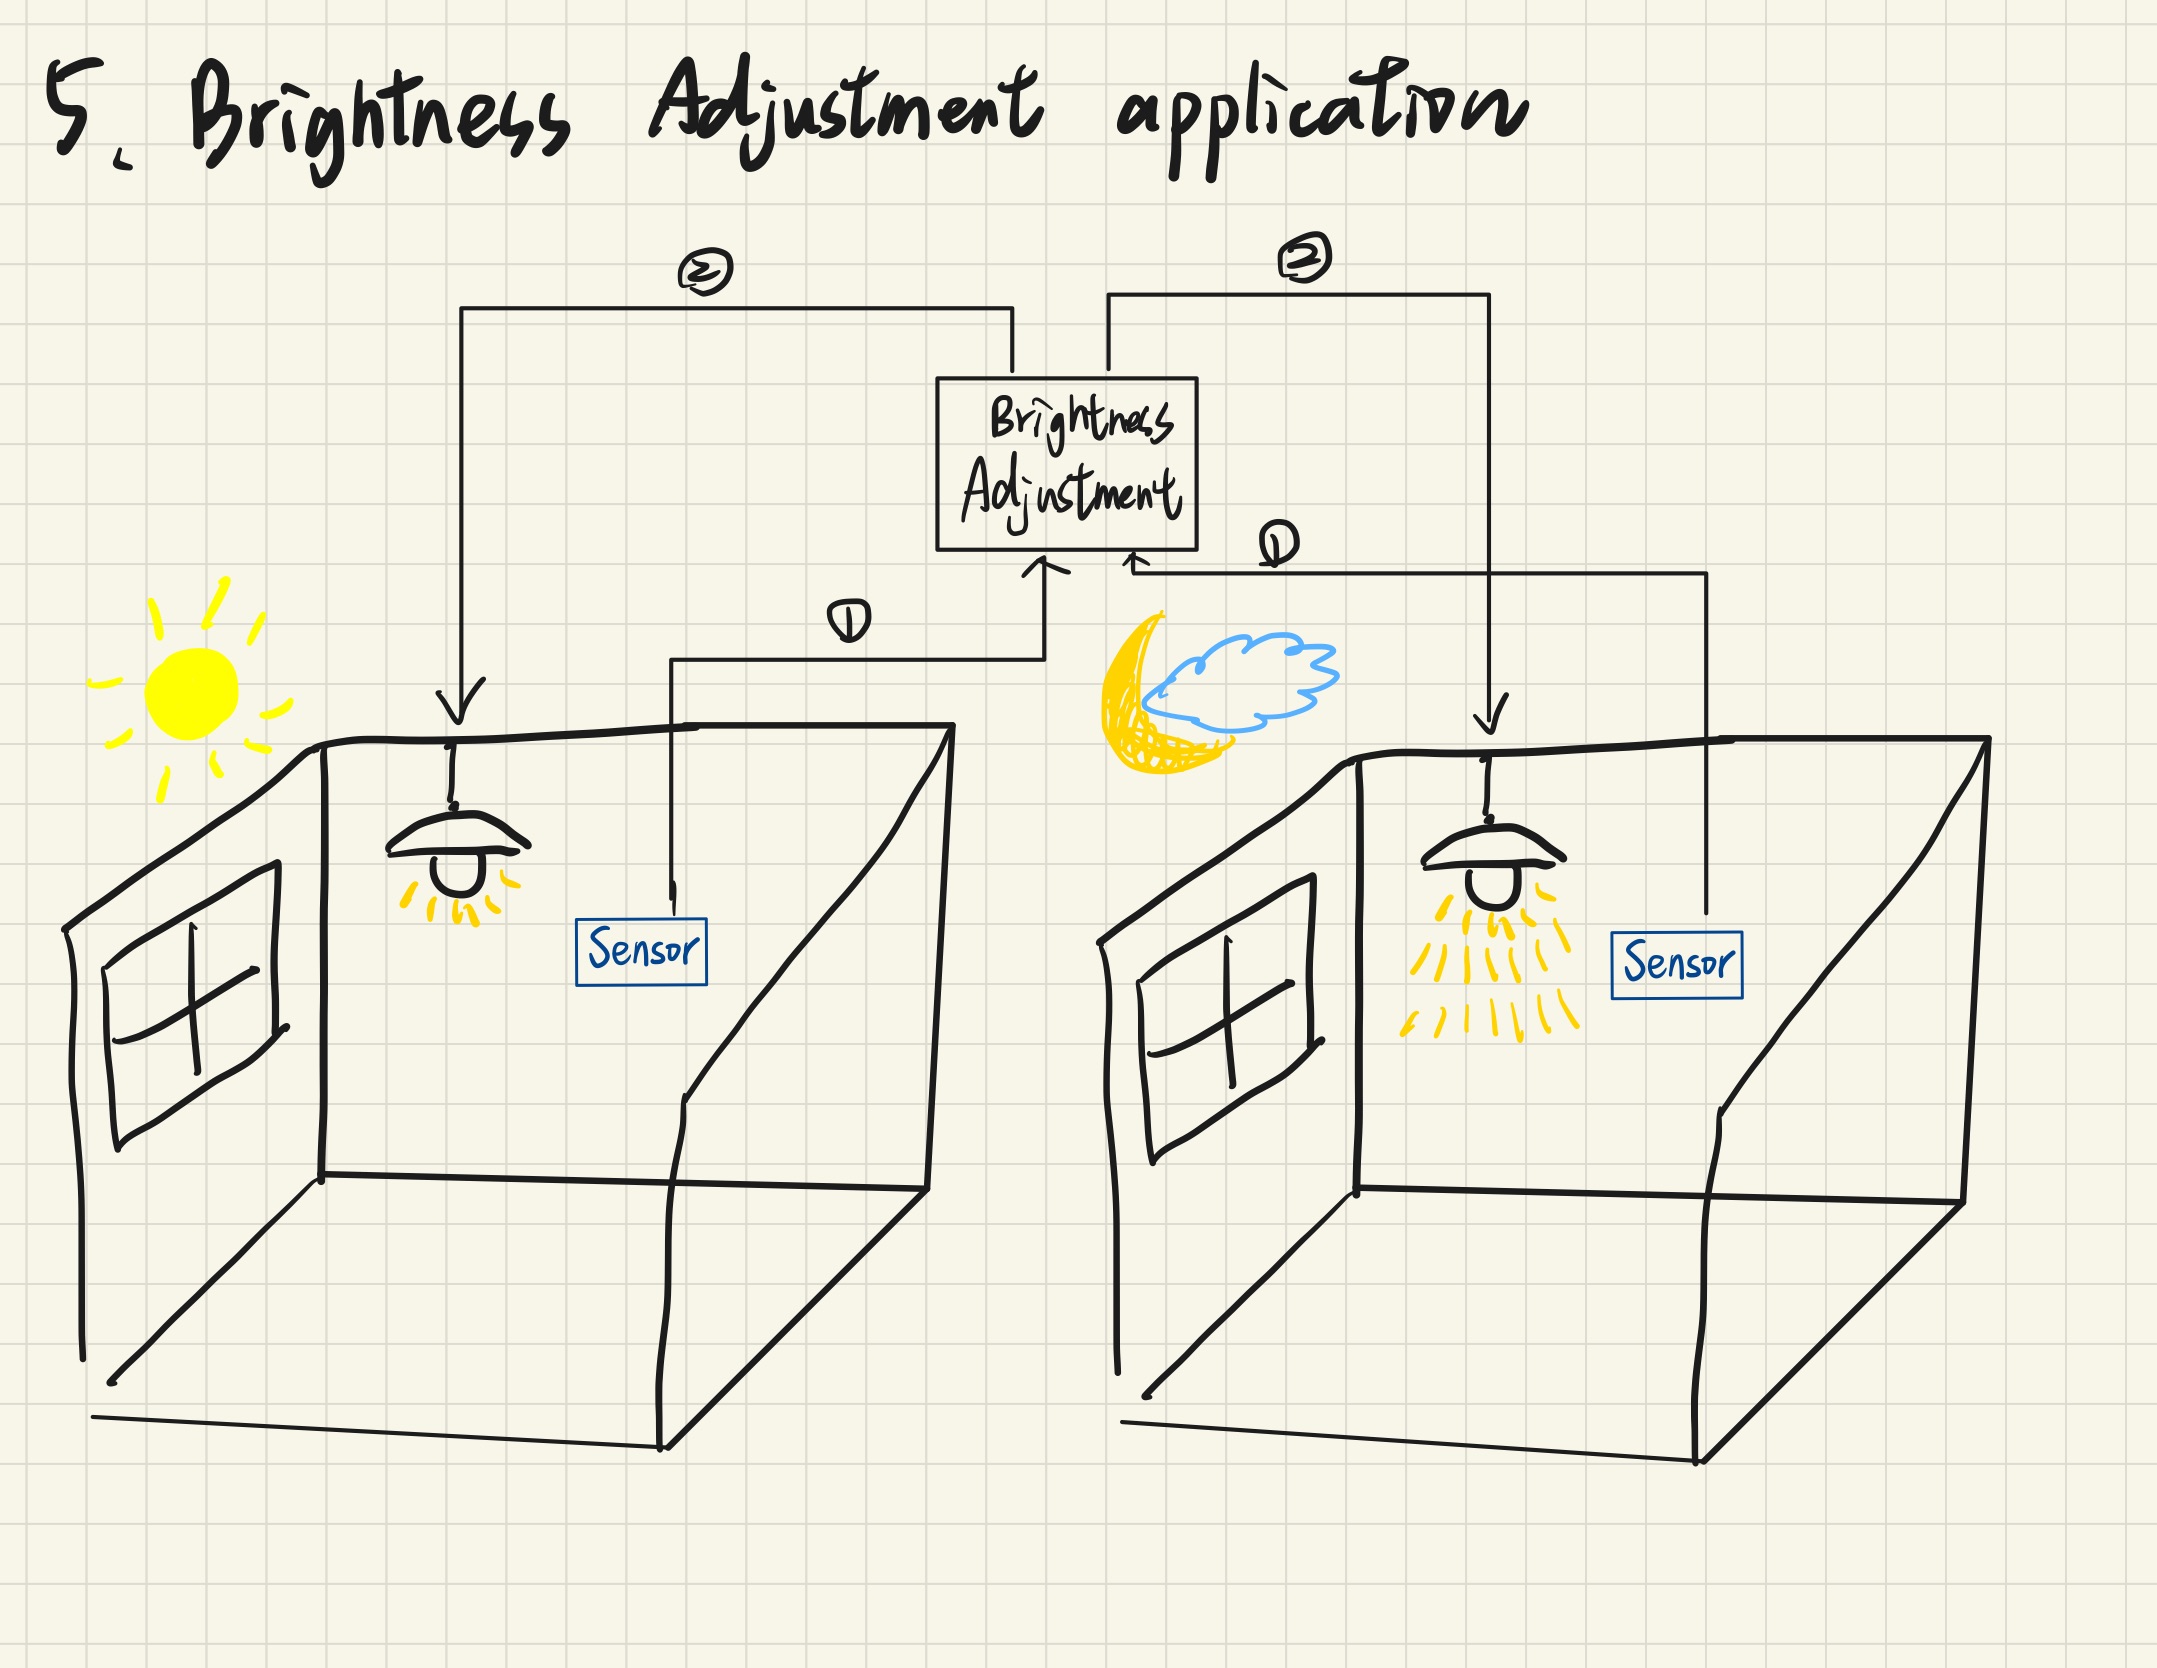 5. Brightness Adjustment application
② ②
Brightness
Adjustment
①
①
Sensor
Sensor